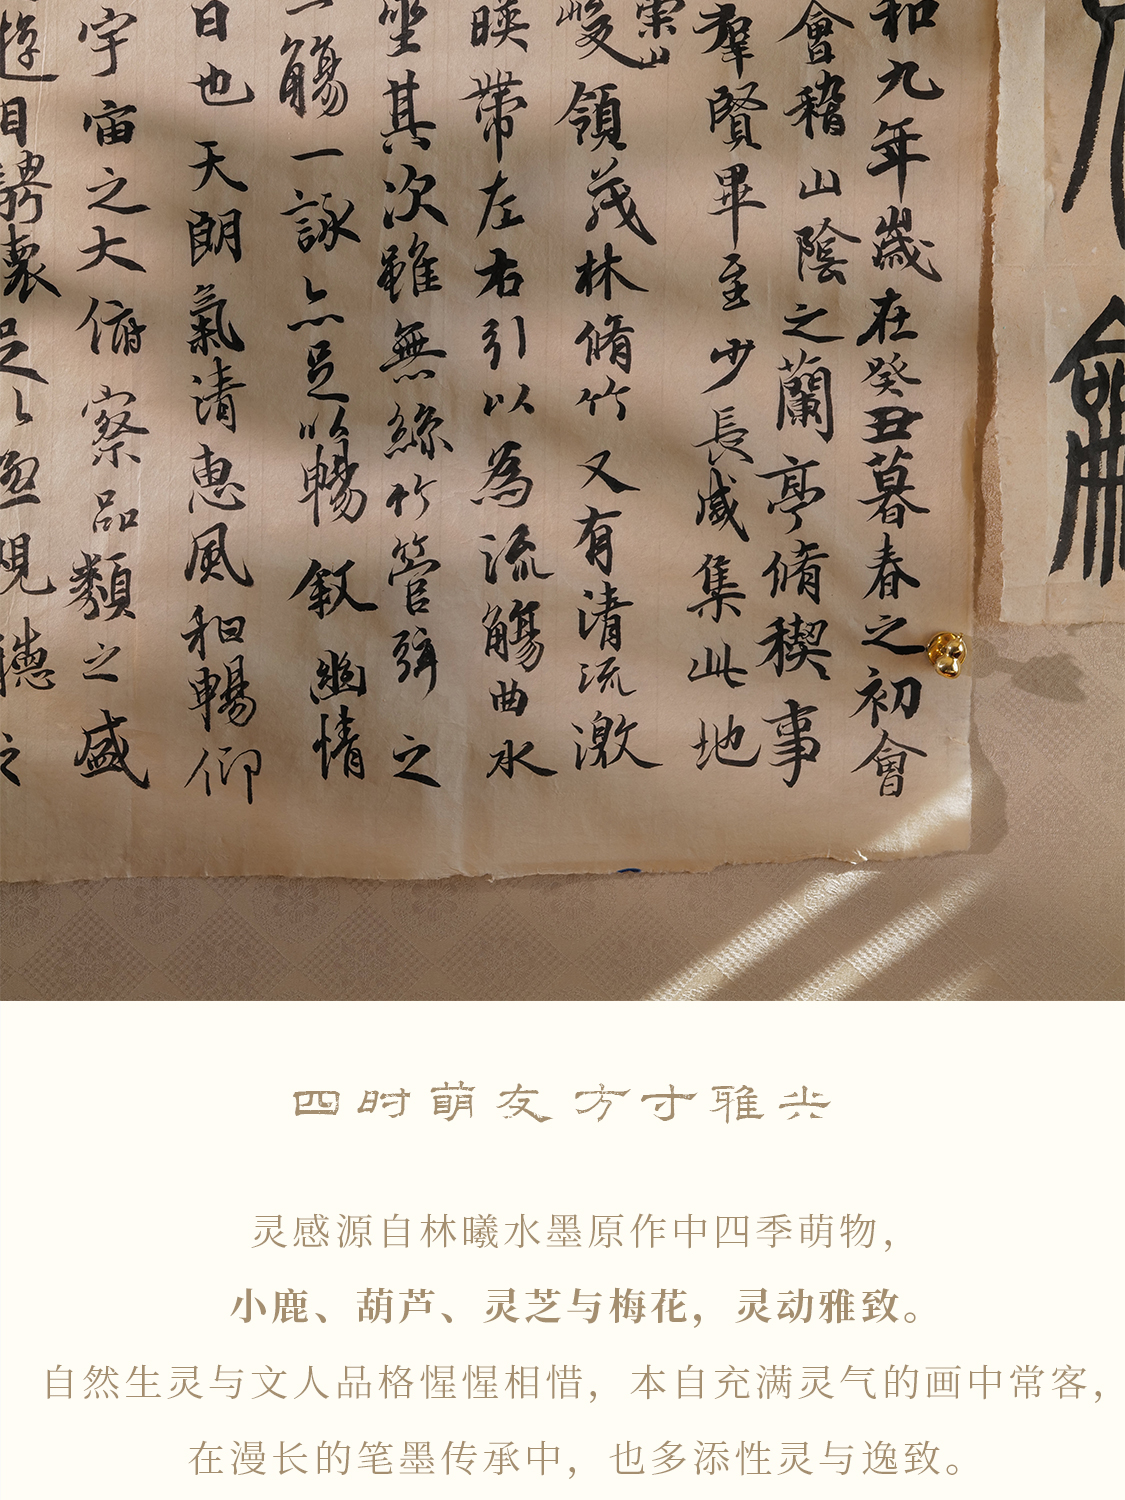 和九年歲在癸丑暮春之初會
會稽山陰之蘭亭脩稧事
羣賢畢至少長咸集此地
崇山
峻領茂林脩竹又有清流激
暎帶左右引以為流觴曲水
坐其次雖無絲竹管弦之
一觴一詠亦足以暢敘幽情
日也天朗氣清惠風和暢仰
宇宙之大俯察品類之盛
遊目騁懷足以極視聽之
四时萌友 方寸雅兴
灵感源自林曦水墨原作中四季萌物，
小鹿、葫芦、灵芝与梅花，灵动雅致。
自然生灵与文人品格惺惺相惜，本自充满灵气的画中常客，
在漫长的笔墨传承中，也多添性灵与逸致。